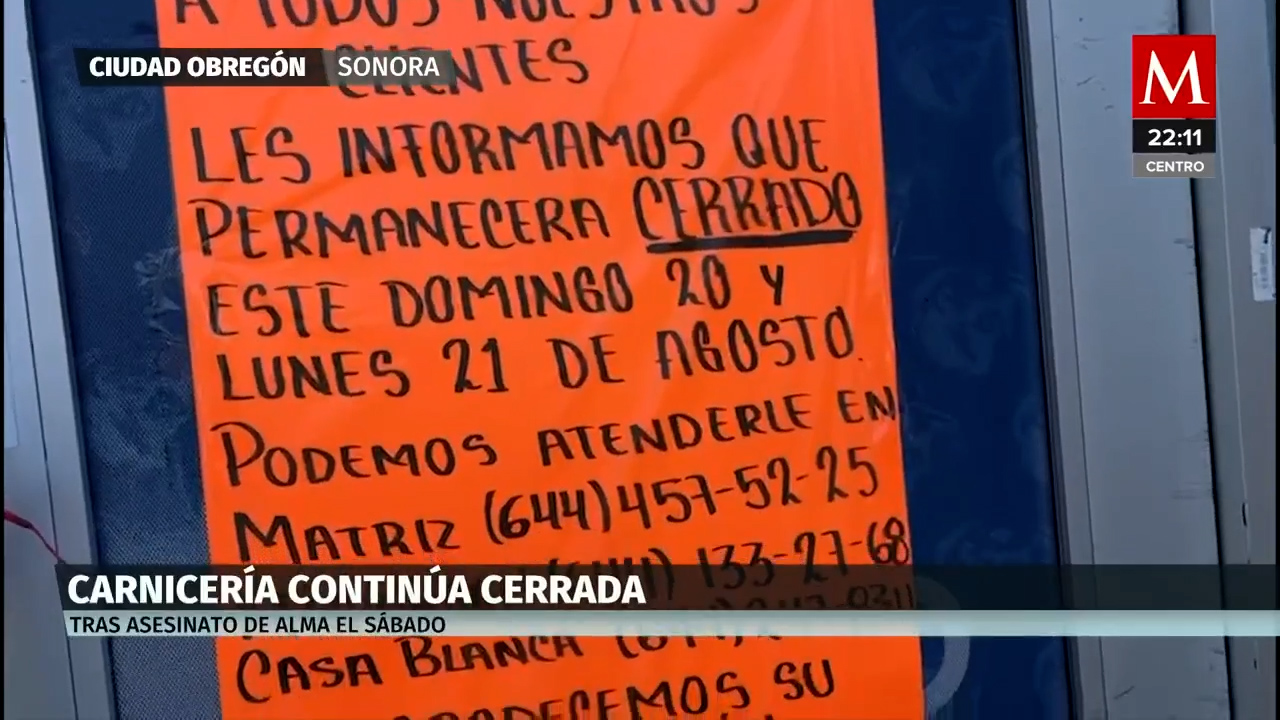 A TODOS NUESTROS
CLIENTES
CIUDAD OBREGÓN SONORA
M
22:11
CENTRO
LES INFORMAMOS QUE
PERMANECERA CERRADO
ESTE DOMINGO 20 Y
LUNES 21 DE AGOSTO.
PODEMOS ATENDERLE EN
MATRIZ (644) 457-52-25
133-27-68
CARNICERÍA CONTINÚA CERRADA
TRAS ASESINATO DE ALMA EL SÁBADO
CASA BLANCA
SU